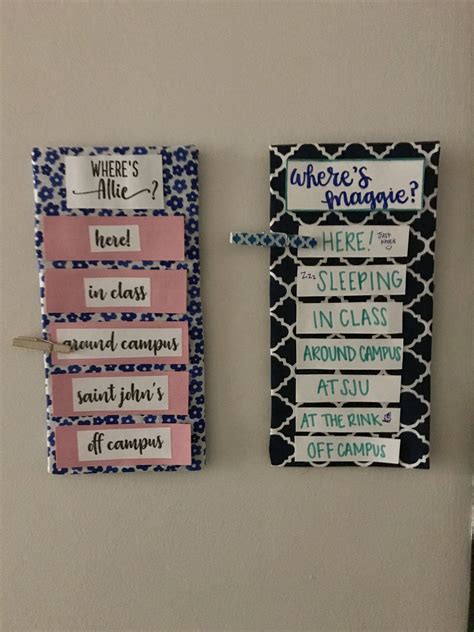 WHERE'S
Allie ?
here!
in class
around campus
saint john's
off campus
where's
maggie?
HERE! JUST KNOCK
Zzz SLEEPING
IN CLASS
AROUND CAMPUS
AT SJU
AT THE RINK
OFF CAMPUS